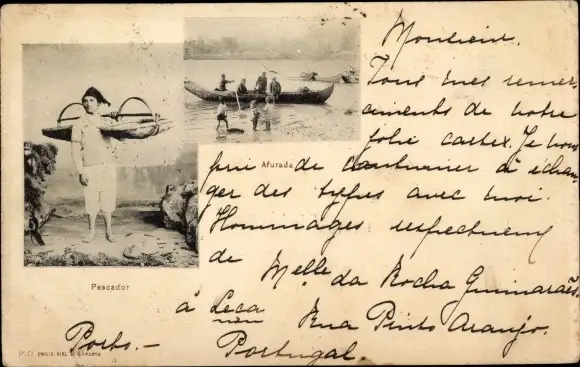 Monsieur.
Tous mes remer-
ciments de votre
jolie carte. Je vous
prie de continuer à échan-
ger des types avec moi.
Hommages respectueux
de Melle da Rocha Guimarães
à Leça Rua Pinto Araujo.
Porto.- Portugal.
Afurada
Pescador
EMILIO BIEL & Cª - PORTO